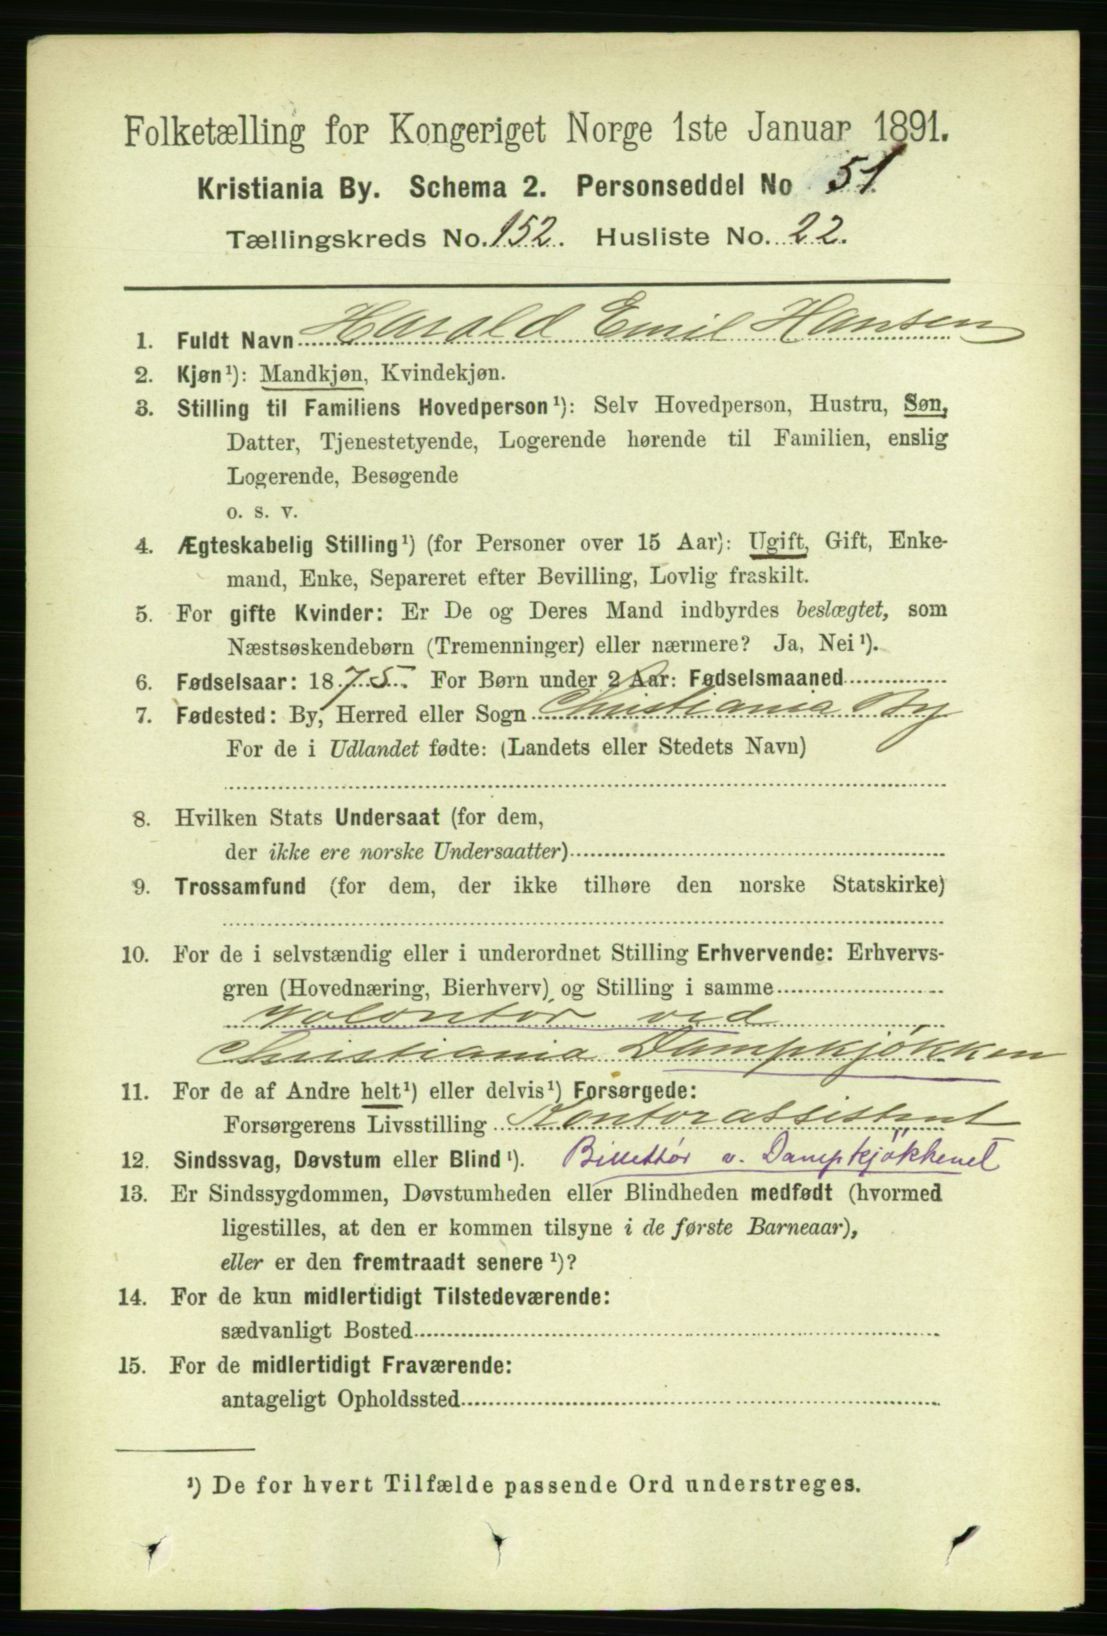 Folketælling for Kongeriget Norge 1ste Januar 1891.
Kristiania By. Schema 2. Personseddel No 51
Tællingskreds No. 152. Husliste No. 22.
1. Fuldt Navn Harald Emil Hansen
2. Kjøn¹): Mandkjøn, Kvindekjøn.
3. Stilling til Familiens Hovedperson¹): Selv Hovedperson, Hustru, Søn,
Datter, Tjenestetyende, Logerende hørende til Familien, enslig
Logerende, Besøgende
o. s. v.
4. Ægteskabelig Stilling¹) (for Personer over 15 Aar): Ugift, Gift, Enke-
mand, Enke, Separeret efter Bevilling, Lovlig fraskilt.
5. For gifte Kvinder: Er De og Deres Mand indbyrdes beslægtet, som
Næstsøskendebørn (Tremenninger) eller nærmere? Ja, Nei¹).
6. Fødselsaar: 1875. For Børn under 2 Aar: Fødselsmaaned
7. Fødested: By, Herred eller Sogn Christiania By
For de i Udlandet fødte: (Landets eller Stedets Navn)
8. Hvilken Stats Undersaat (for dem,
der ikke ere norske Undersaatter)
9. Trossamfund (for dem, der ikke tilhøre den norske Statskirke)
10. For de i selvstændig eller i underordnet Stilling Erhvervende: Erhvervs-
gren (Hovednæring, Bierhverv) og Stilling i samme
Volontør ved
Christiania Dampkjøkken
11. For de af Andre helt¹) eller delvis¹) Forsørgede:
Forsørgerens Livsstilling Kontorassistent
12. Sindssvag, Døvstum eller Blind¹). Billettør v. Dampkjøkkenet
13. Er Sindssygdommen, Døvstumheden eller Blindheden medfødt (hvormed
ligestilles, at den er kommen tilsyne i de første Barneaar),
eller er den fremtraadt senere¹)?
14. For de kun midlertidigt Tilstedeværende:
sædvanligt Bosted
15. For de midlertidigt Fraværende:
antageligt Opholdssted
¹) De for hvert Tilfælde passende Ord understreges.